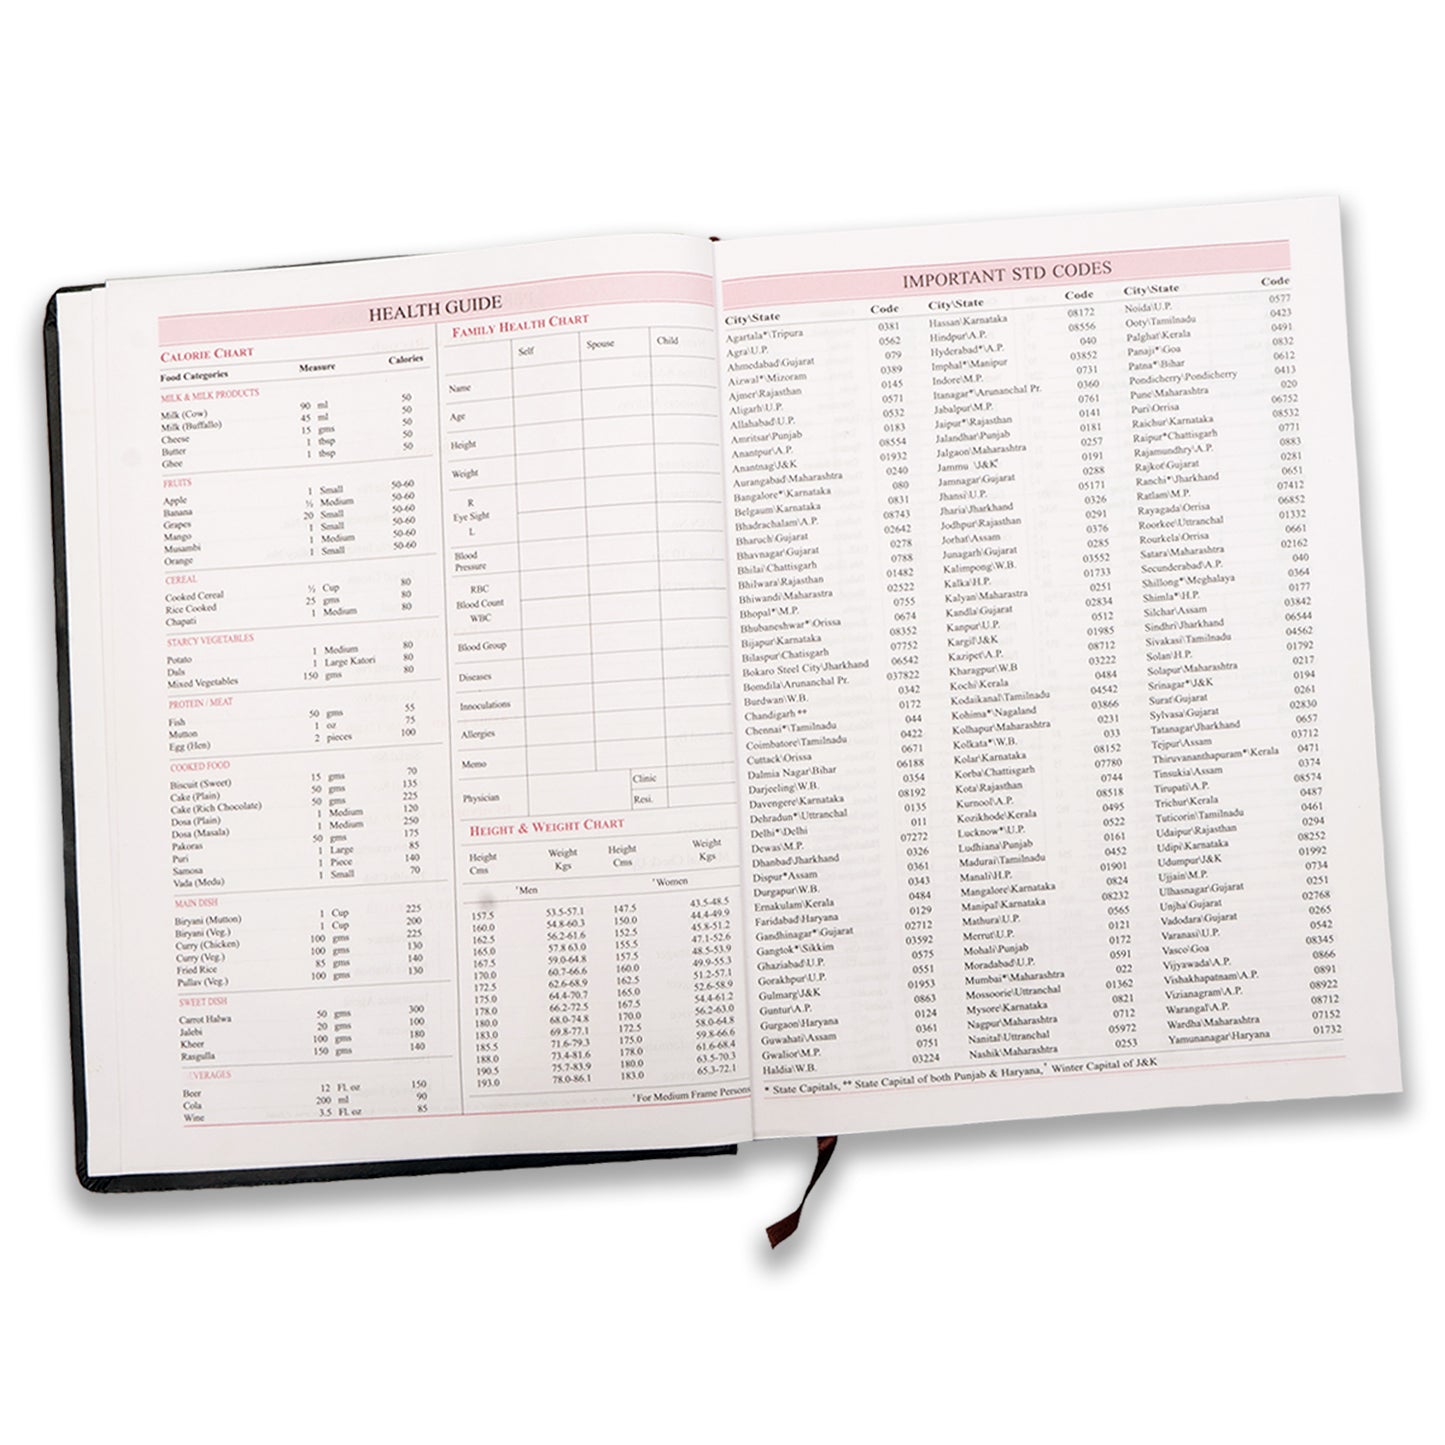 HEALTH GUIDE
CALORIE CHART
Food Categories Measure Calories
MILK & MILK PRODUCTS
Milk (Cow) 90 ml 50
Milk (Buffallo) 45 ml 50
Cheese 15 gms 50
Butter 1 tbsp 50
Ghee 1 tbsp 50
FRUITS
Apple 1 Small 50-60
Banana ½ Medium 50-60
Grapes 20 Small 50-60
Mango 1 Small 50-60
Musambi 1 Medium 50-60
Orange 1 Small 50-60
CEREAL
Cooked Cereal ½ Cup 80
Rice Cooked 25 gms 80
Chapati 1 Medium 80
STARCY VEGETABLES
Potato 1 Medium 80
Dals 1 Large Katori 80
Mixed Vegetables 150 gms 80
PROTEIN / MEAT
Fish 50 gms 55
Mutton 1 oz 75
Egg (Hen) 2 pieces 100
COOKED FOOD
Biscuit (Sweet) 15 gms 70
Cake (Plain) 50 gms 135
Cake (Rich Chocolate) 50 gms 225
Dosa (Plain) 1 Medium 120
Dosa (Masala) 1 Medium 250
Pakoras 50 gms 175
Puri 1 Large 85
Samosa 1 Piece 140
Vada (Medu) 1 Small 70
MAIN DISH
Biryani (Mutton) 1 Cup 225
Biryani (Veg.) 1 Cup 200
Curry (Chicken) 100 gms 225
Curry (Veg.) 100 gms 130
Fried Rice 85 gms 140
Pullav (Veg.) 100 gms 130
SWEET DISH
Carrot Halwa 50 gms 300
Jalebi 20 gms 100
Kheer 100 gms 180
Rasgulla 150 gms 140
VERAGES
Beer 12 FL oz 150
Cola 200 ml 90
Wine 3.5 FL oz 85
FAMILY HEALTH CHART
Self Spouse Child
Name
Age
Height
Weight
R
Eye Sight
L
Blood
Pressure
RBC
Blood Count
WBC
Blood Group
Diseases
Innoculations
Allergies
Memo
Physician Clinic
Resi.
HEIGHT & WEIGHT CHART
Height Weight Height Weight
Cms Kgs Cms Kgs
'Men 'Women
157.5 53.5-57.1 147.5 43.5-48.5
160.0 54.8-60.3 150.0 44.4-49.9
162.5 56.2-61.6 152.5 45.8-51.2
165.0 57.8 63.0 155.5 47.1-52.6
167.5 59.0-64.8 157.5 48.5-53.9
170.0 60.7-66.6 160.0 49.9-55.3
172.5 62.6-68.9 162.5 51.2-57.1
175.0 64.4-70.7 165.0 52.6-58.9
178.0 66.2-72.5 167.5 54.4-61.2
180.0 68.0-74.8 170.0 56.2-63.0
183.0 69.8-77.1 172.5 58.0-64.8
185.5 71.6-79.3 175.0 59.8-66.6
188.0 73.4-81.6 178.0 61.6-68.4
190.5 75.7-83.9 180.0 63.5-70.3
193.0 78.0-86.1 183.0 65.3-72.1
'For Medium Frame Persons
IMPORTANT STD CODES
City\State Code
Agartala*\Tripura 0381
Agra\U.P. 0562
Ahmedabad\Gujarat 079
Aizwal*\Mizoram 0389
Ajmer\Rajasthan 0145
Aligarh\U.P. 0571
Allahabad\U.P. 0532
Amritsar\Punjab 0183
Anantpur\A.P. 08554
Anantnag\J&K 01932
Aurangabad\Maharashtra 0240
Bangalore*\Karnataka 080
Belgaum\Karnataka 0831
Bhadrachalam\A.P. 08743
Bharuch\Gujarat 02642
Bhavnagar\Gujarat 0278
Bhilai\Chattisgarh 0788
Bhilwara\Rajasthan 01482
Bhiwandi\Maharastra 02522
Bhopal*\M.P. 0755
Bhubaneshwar*\Orissa 0674
Bijapur\Karnataka 08352
Bilaspur\Chatisgarh 07752
Bokaro Steel City\Jharkhand 06542
Bomdila\Arunanchal Pr. 037822
Burdwan\W.B. 0342
Chandigarh ** 0172
Chennai*\Tamilnadu 044
Coimbatore\Tamilnadu 0422
Cuttack\Orissa 0671
Dalmia Nagar\Bihar 06188
Darjeeling\W.B. 0354
Davengere\Karnataka 08192
Dehradun*\Uttranchal 0135
Delhi*\Delhi 011
Dewas\M.P. 07272
Dhanbad\Jharkhand 0326
Dispur*Assam 0361
Durgapur\W.B. 0343
Ernakulam\Kerala 0484
Faridabad\Haryana 0129
Gandhinagar*\Gujarat 02712
Gangtok*\Sikkim 03592
Ghaziabad\U.P. 0575
Gorakhpur\U.P. 0551
Gulmarg\J&K 01953
Guntur\A.P. 0863
Gurgaon\Haryana 0124
Guwahati\Assam 0361
Gwalior\M.P. 0751
Haldia\W.B. 03224
City\State Code
Hassan\Karnataka 08172
Hindpur\A.P. 08556
Hyderabad*\A.P. 040
Imphal*\Manipur 03852
Indore\M.P. 0731
Itanagar*\Arunanchal Pr. 0360
Jabalpur\M.P. 0761
Jaipur*\Rajasthan 0141
Jalandhar\Punjab 0181
Jalgaon\Maharashtra 0257
Jammu \J&K* 0191
Jamnagar\Gujarat 0288
Jhansi\U.P. 05171
Jharia\Jharkhand 0326
Jodhpur\Rajasthan 0291
Jorhat\Assam 0376
Junagarh\Gujarat 0285
Kalimpong\W.B. 03552
Kalka\H.P. 01733
Kalyan\Maharashtra 0251
Kandla\Gujarat 02834
Kanpur\U.P. 0512
Kargil\J&K 01985
Kazipet\A.P. 08712
Kharagpur\W.B 03222
Kochi\Kerala 0484
Kodaikanal\Tamilnadu 04542
Kohima*\Nagaland 03866
Kolhapur\Maharashtra 0231
Kolkata*\W.B. 033
Kolar\Karnataka 08152
Korba\Chattisgarh 07780
Kota\Rajasthan 0744
Kurnool\A.P. 08518
Kozhikode\Kerala 0495
Lucknow*\U.P. 0522
Ludhiana\Punjab 0161
Madurai\Tamilnadu 0452
Manali\H.P. 01901
Mangalore\Karnataka 0824
Manipal\Karnataka 08232
Mathura\U.P. 0565
Merrut\U.P. 0121
Mohali\Punjab 0172
Moradabad\U.P. 0591
Mumbai*\Maharashtra 022
Mossoorie\Uttranchal 01362
Mysore\Karnataka 0821
Nagpur\Maharashtra 0712
Nanital\Uttranchal 05972
Nashik\Maharashtra 0253
City\State Code
Noida\U.P. 0577
Ooty\Tamilnadu 0423
Palghat\Kerala 0491
Panaji*\Goa 0832
Patna*\Bihar 0612
Pondicherry\Pondicherry 0413
Pune\Maharashtra 020
Puri\Orissa 06752
Raichur\Karnataka 08532
Raipur*Chattisgarh 0771
Rajamundhry\A.P. 0883
Rajkot\Gujarat 0281
Ranchi*\Jharkhand 0651
Ratlam\M.P. 07412
Rayagada\Orissa 06852
Roorkee\Uttranchal 01332
Rourkela\Orissa 0661
Satara\Maharashtra 02162
Secunderabad\A.P. 040
Shillong*\Meghalaya 0364
Shimla*\H.P. 0177
Silchar\Assam 03842
Sindhri\Jharkhand 06544
Sivakasi\Tamilnadu 04562
Solan\H.P. 01792
Solapur\Maharashtra 0217
Srinagar*\J&K 0194
Surat\Gujarat 0261
Sylvasa\Gujarat 02830
Tatanagar\Jharkhand 0657
Tejpur\Assam 03712
Thiruvananthapuram*\Kerala 0471
Tinsukia\Assam 0374
Tirupati\A.P. 08574
Trichur\Kerala 0487
Tuticorin\Tamilnadu 0461
Udaipur\Rajasthan 0294
Udipi\Karnataka 08252
Udumpur\J&K 01992
Ujjain\M.P. 0734
Ulhasnagar\Gujarat 0251
Unjha\Gujarat 02768
Vadodara\Gujarat 0265
Varanasi\U.P. 0542
Vasco\Goa 08345
Vijyawada\A.P. 0866
Vishakhapatnam\A.P. 0891
Vizianagram\A.P. 08922
Warangal\A.P. 08712
Wardha\Maharashtra 07152
Yamunanagar\Haryana 01732
* State Capitals, ** State Capital of both Punjab & Haryana,* Winter Capital of J&K